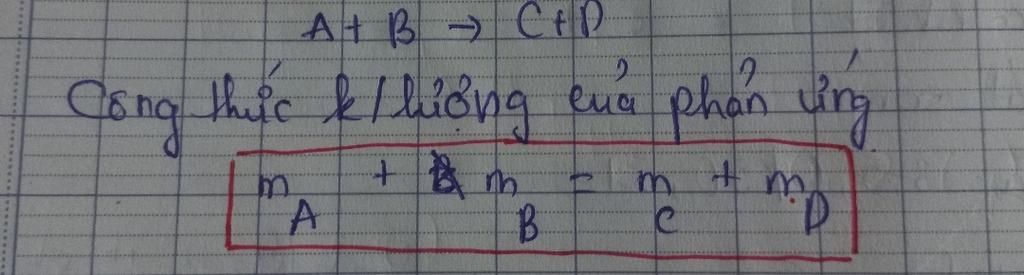 A + B → C + D
Công thức k/lượng của phản ứng
m_A + m_B = m_C + m_D